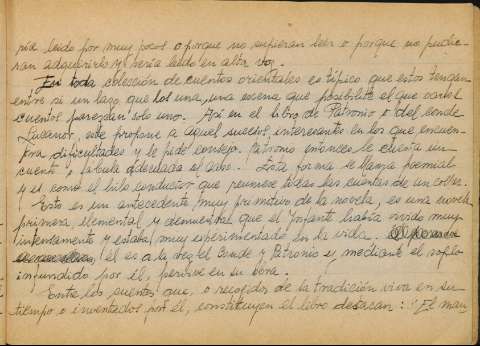 ría leído por muy pocos o porque no supieran leer o porque no pudie-
ran adquirirlo y sería leído en alta voz.
En toda colección de cuentos orientales es típico que estos tengan
entre si un lazo que los una, una escena que posibilite el que varios
cuentos parezcan solo uno. Así en el libro de Patronio o del conde
Lucanor, este propone a aquel sucesos interesantes en los que encuen-
tra dificultades y le pide consejo. Patronio entonces le cuenta un
cuento y fábula adecuada al caso. Esta forma se llama poemial
y es como el hilo conductor que reuniese todas las cuentas de un collar.
Esto es un antecedente, muy primitivo de la novela, es una novela
primera, elemental y demuestra que el Infante había vivido muy
intensamente y estaba muy experimentado en la vida.
él es a la vez el Conde y Patronio y mediante el soplo
infundido por él, pervive en su obra.
Entre los cuentos que, o recogidos de la tradición viva en su
tiempo o inventados por él, constituyen el libro destacan: "El man